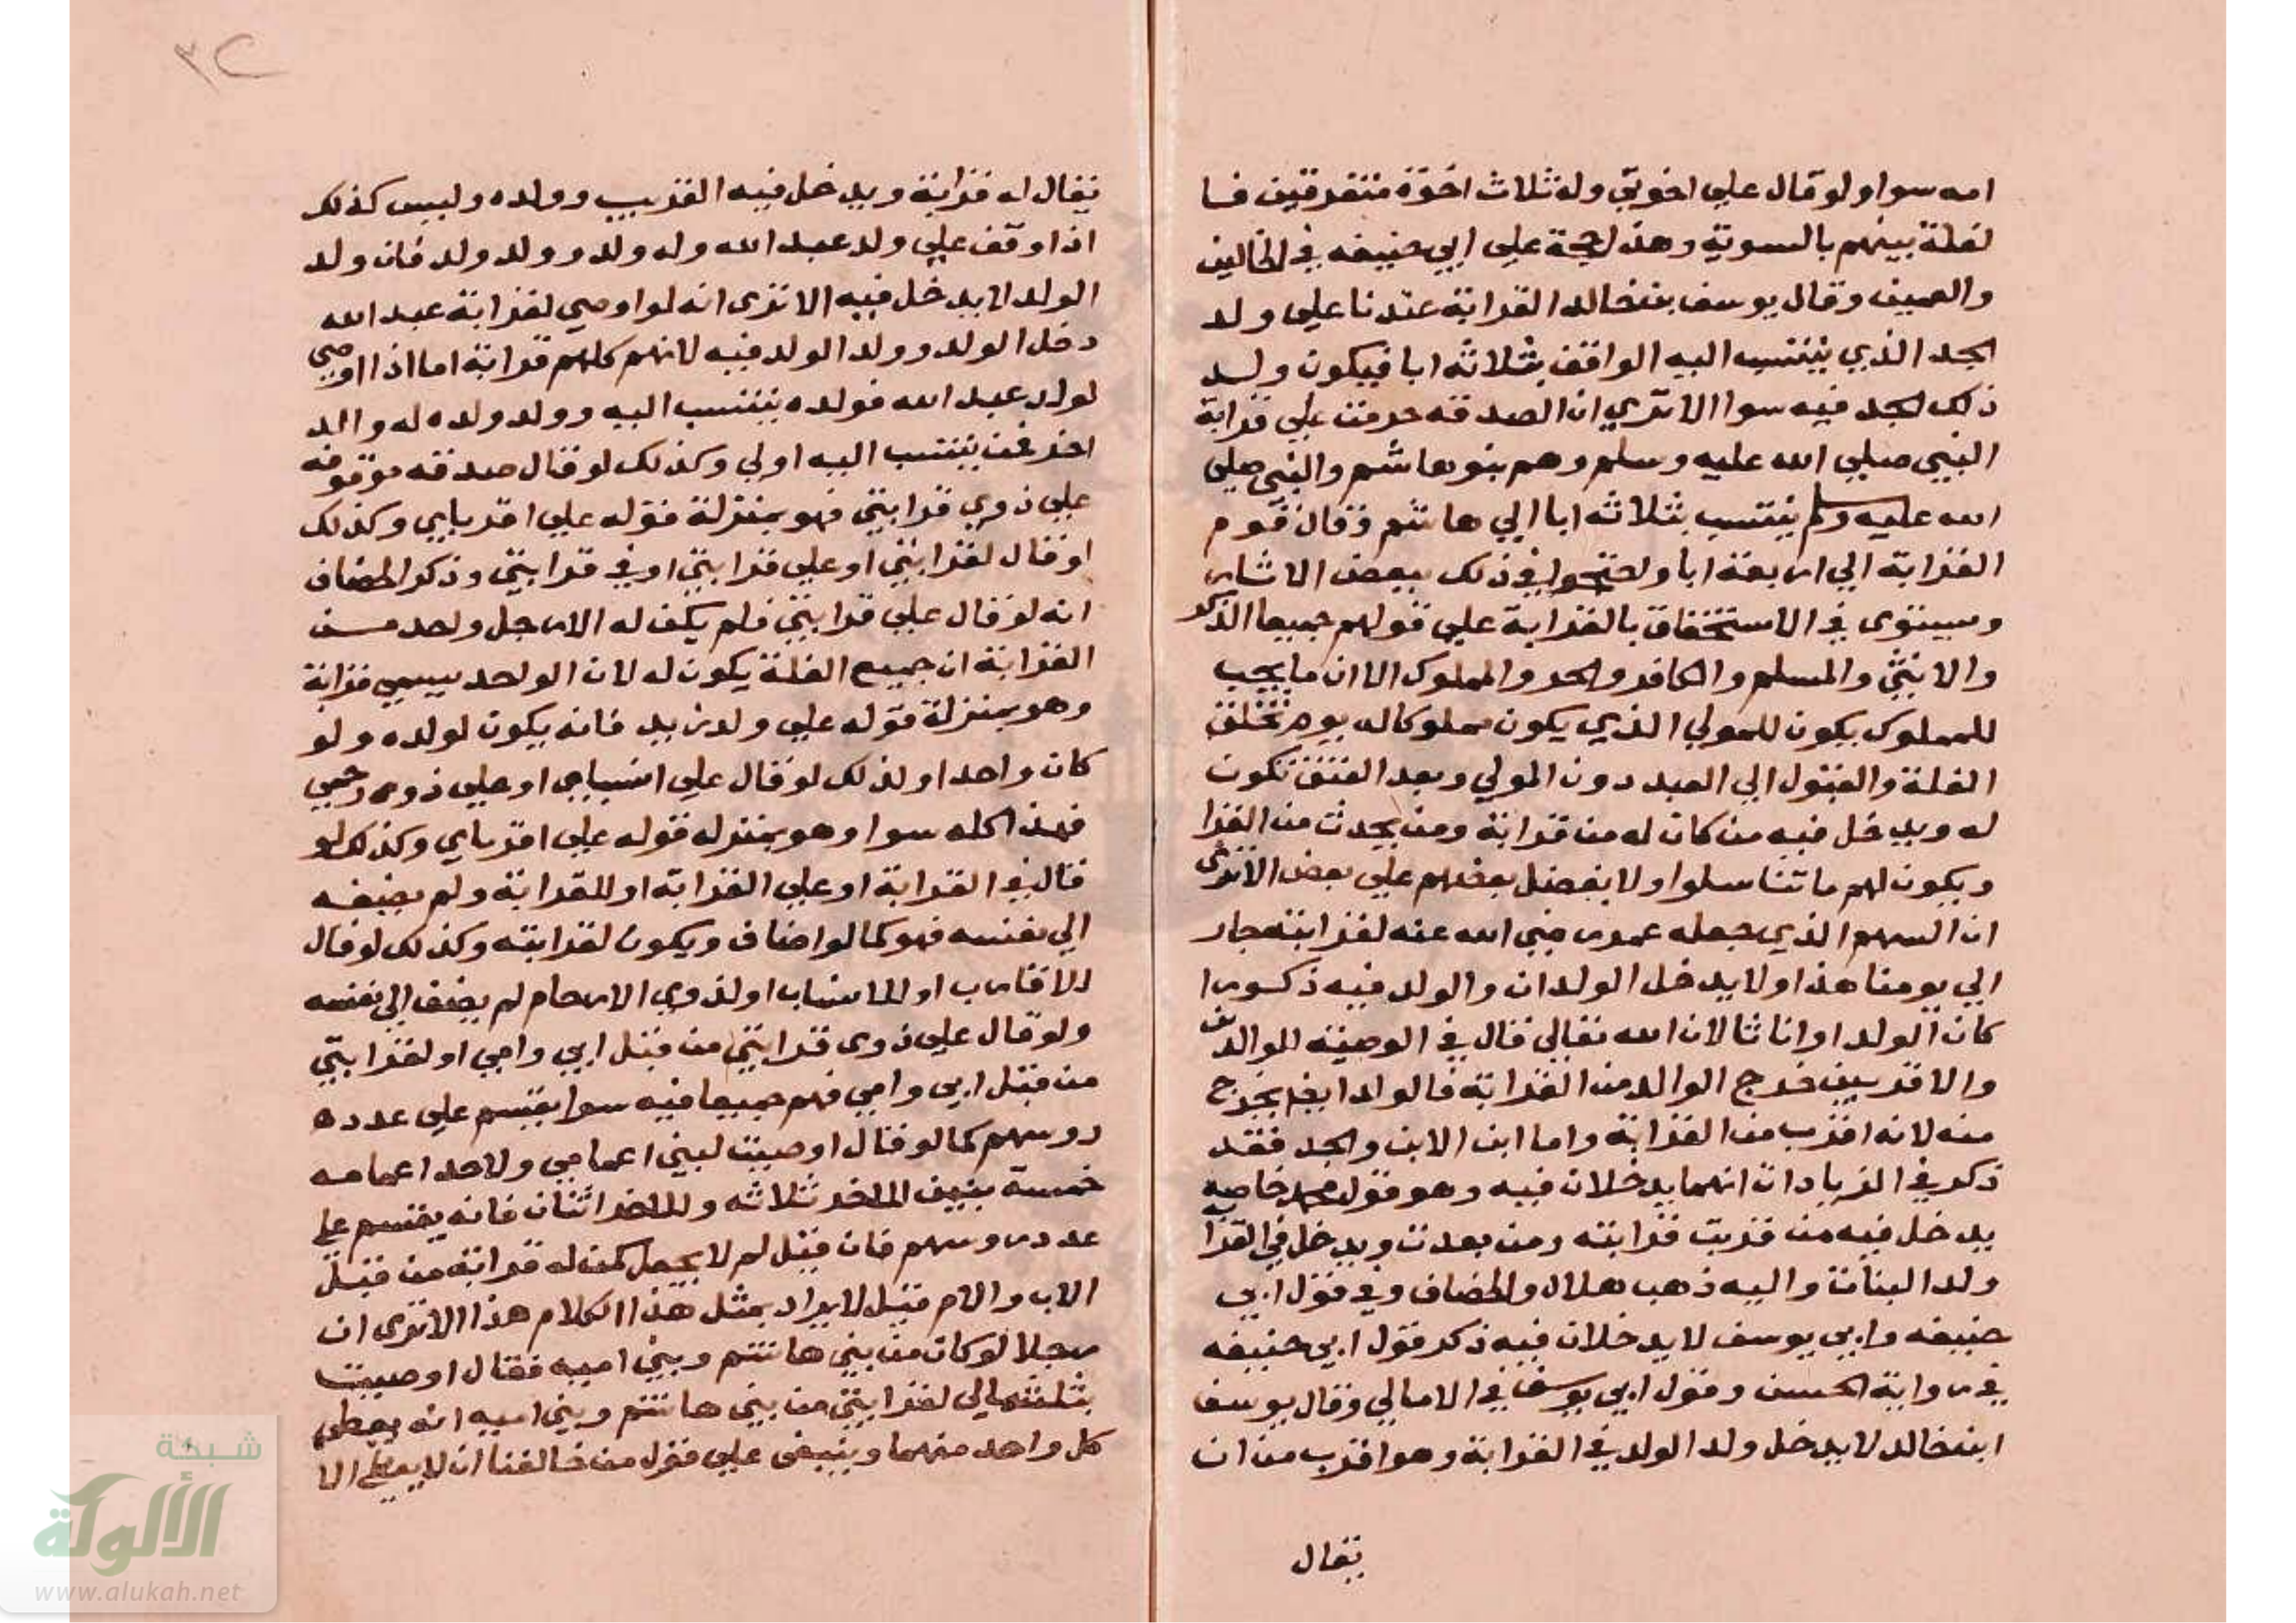 امه سوا ولو قال علي اخوتي وله ثلاث اخوة متفرقين فا
لغلة بينهم بالسوية وهذا حجة علي ابي حنيفه في الخالين
والعمين وقال يوسف بن خالد القرابة عندنا علي ولد
الجد الذي ينتسب اليه الواقف بثلاثة ابا فيكون ولد
ذلك الجد فيه سوا الا تري ان الصدقه حرمت علي قرابة
النبي صلي الله عليه وسلم وهم بنو هاشم والنبي صلي
الله عليه وسلم ينتسب بثلاثه ابا الي هاشم وقال قوم
القرابة الي اربعة ابا واحتجوا في ذلك ببعض الاشار
ويستوي في الاستحقاق بالقرابة علي قولهم جميعا الذكر
والانثي والمسلم والكافر والحر والمملوك الا ان ما يجب
للمملوك يكون للمولي الذي يكون مملوكا له يوم تخلق
الغلة والقبول الي العبد دون المولي وبعد العتق تكون
له ويدخل فيه من كان له من قرابة ومن يحدث من القرا
ويكون لهم ما تناسلوا ولا يفضل بعضهم علي بعض الا تري
ان السهم الذي جعله عمر رضي الله عنه لقرابته جار
الي يومنا هذا ولا يدخل الوالدان والولد فيه ذكورا
كان الولد او اناثا لان الله تعالي قال في الوصيه للوالدين
والاقربين خرج الوالد من القرابة فالولد ايضا يخرج
منه لانه اقرب من القرابة واما ابن الابن والجد فقد
ذكر في الزيادات انهما يدخلان فيه وهو قول محمد خاصه
يدخل فيه من قربت قرابته ومن بعدت ويدخل في القرا
ولد البنات واليه ذهب هلال والخصاف وفي قول ابي
حنيفه وابي يوسف لا يدخلان فيه ذكر قول ابي حنيفه
في رواية الحسن وقول ابي يوسف في الامالي وقال يوسف
ابن خالد لا يدخل ولد الولد في القرابة وهو اقرب من ان
يقال
يقال له قرابة ويدخل فيه القريب وولده وليس كذلك
اذا وقف علي ولد عبد الله وله ولد وولد ولد فان ولد
الولد لا يدخل فيه الا تري انه لو اوصي لقرابة عبد الله
دخل الولد وولد الولد فيه لانهم كلهم قرابة اما اذا اوصي
لولد عبد الله فولده ينتسب اليه وولد ولده له والد
اخر فمن ينتسب اليه اولي وكذلك لو قال صدقه موقوفه
علي ذوي قرابتي فهو بمنزلة قوله علي اقربايي وكذلك
او قال لقرابتي او علي قرابتي او في قرابتي وذكر الخصاف
انه لو قال علي قرابتي فلم يكن له الا رجل واحد من
القرابة ان جميع الغلة يكون له لان الواحد يسمي قرابة
وهو بمنزلة قوله علي ولد زيد فانه يكون لولده ولو
كان واحدا ولذلك لو قال علي انسبايي او علي ذوي رحمي
فهذا كله سوا وهو بمنزله قوله علي اقرباي وكذلك لو
قال في القرابة او علي القرابة او للقرابة ولم يضيفه
الي نفسه فهو كما لو اضاف ويكون لقرابته وكذلك لو قال
للاقارب او للانساب او لذوي الارحام لم يضف الي نفسه
ولو قال علي ذوي قرابتي من قبل ابي وامي او لقرابتي
من قبل ابي وامي فهم جميعا فيه سوا يقسم علي عدده
روسهم كما لو قال اوصيت لبني اعمامي ولاحد اعمامه
خمسة بنين للاخر ثلاثه وللاخر اثنان فانه يقسم علي
عدد روسهم فان قيل لم لا يجعل كمن له قرابة من قبل
الاب والام قيل لا يراد بمثل هذا الكلام هذا الا تري ان
رجلا لو كان من بني هاشم وبني اميه فقال اوصيت
بثلث مالي لقرابتي من بني هاشم وبني اميه انه يعطي
كل واحد منهما وينبغي علي قول من خالفنا ان لا يعطي الا
شبكة
الألوكة
www.alukah.net